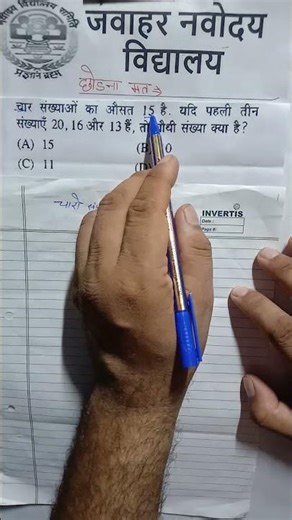 जवाहर नवोदय
विद्यालय
छोडना मत है
चार संख्याओं का औसत 15 है. यदि पहली तीन
संख्याएँ 20, 16 और 13 हैं, तो चौथी संख्या क्या है?
(A) 15
(C) 11
चारो
INVERTIS
Date :
Page #: